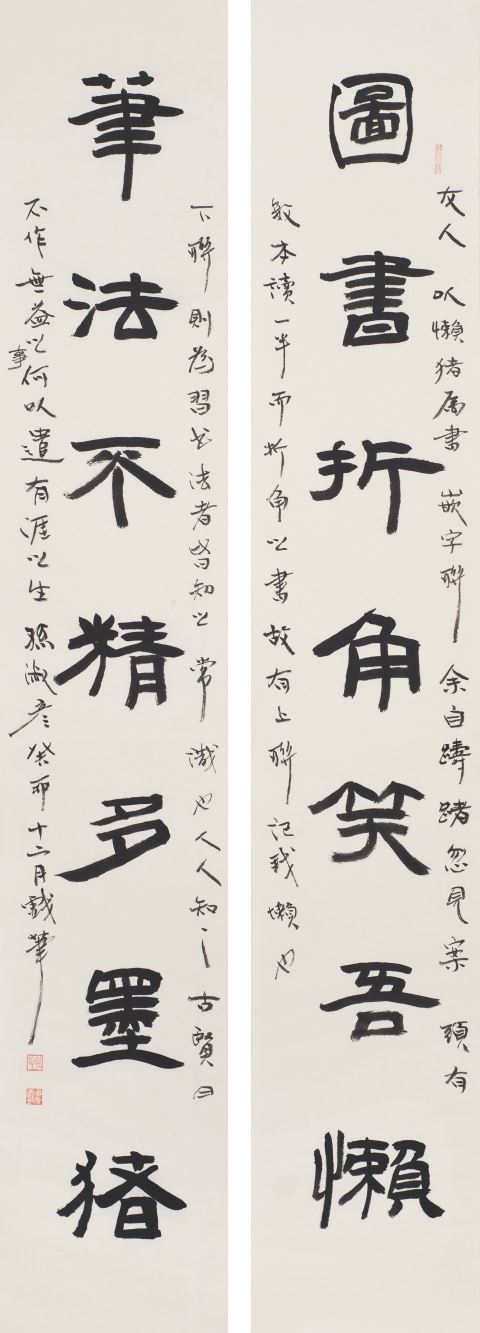 友人 以懶猪属書 嵌字聯 余自躊躇忽見案 頭有
圖書折角笑吾懶
数本讀一半而折角之書故有上聯記我懶也
下聯則為習书法者皆知之常識也人人知之古賢曰
筆法不精多墨猪
不作無益之事何以遣有涯之生孫淑彥癸卯十二月戲筆